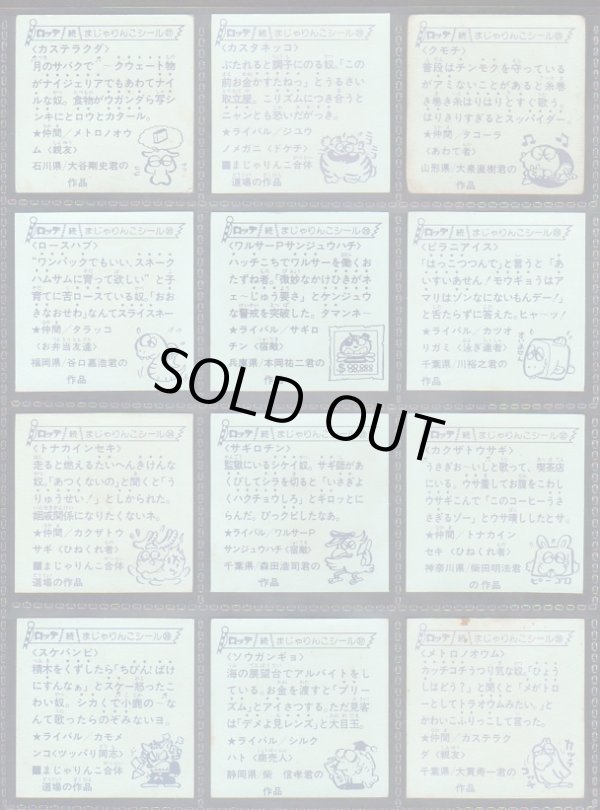 ロッテ 続 まじゃりんこシール
〈カステラクダ〉
月のサバクで〜クウェート物
がナイジェリアでもあわてナイ
ルな奴。食物がウガンダら写シ
ンキにとロウとカタール。
★仲間/メトロノオウ
ム〈親友〉
石川県/大谷剛史君の
作品
ロッテ 続 まじゃりんこシール
〈カスタネッコ〉
ぶたれると調子にのる奴。「この
前お金かすたねっ」とうるさい
取立屋。こリズムにつき合うと
ニャンとも恐いだがっき。
★ライバル/ジユウ
ノメガニ〈ドケチ〉
■まじゃりんこ合体
道場の作品
ロッテ 続 まじゃりんこシール
〈クモチ〉
普段はチンモクを守っている
がアミないことがあると糸巻
き巻き糸はりはりとすぐ歌う。
はりきりすぎるとスッパイダー。
★仲間/タコーラ
〈あわて者〉
山形県/大泉直樹君の
作品
ロッテ 続 まじゃりんこシール
〈ロースハブ〉
"ワンパックでもいい、スネーク
ハムサムに育って欲しい"と子
育てに苦ロースている奴。「おお
きなおせわ」なんてスライスネー
★仲間/タラッコ
〈お弁当友達〉
福岡県/谷口嘉浩君の
作品
ロッテ 続 まじゃりんこシール
〈ワルサーPサンジュウハチ〉
ハッチこちでワルサーを働くお
たずね者。「微妙なかけひきがネ
エ〜じゅう要さ」とケンジュウ
な警戒を突破した。タマンネー
★ライバル/サギロ
チン〈宿敵〉
兵庫県/本岡祐二君の
作品
$99,999
ロッテ 続 まじゃりんこシール
〈ピラニアイス〉
「はっこつつんで」と言うと「あ
いすいあせん!モウギョうはア
マリはゾンなにないもんデー!」
と舌たらずに答えた。ヒャーッ!
★ライバル/カツオ
リガミ〈泳ぎ達者〉
千葉県/川裕之君の
作品
ロッテ 続 まじゃりんこシール
〈トナカインセキ〉
走ると燃えるたいへんきけんな
奴。「あつくないの」と聞くと「う
りゅうせい!」としかられた。
姻戚関係になりたくないネ。
★仲間/カクザトウ
サギ〈ひねくれ者〉
■まじゃりんこ合体
道場の作品
ロッテ 続 まじゃりんこシール
〈サギロチン〉
監獄にいるシケイ奴。サギ師があ
くびしてシラを切ると「いさぎよ
くハクチョウしろ」とギロッとに
らんだ。びっクビしたなあ。
★ライバル/ワルサーP
サンジュウハチ〈宿敵〉
千葉県/森田浩司君の
作品
ロッテ 続 まじゃりんこシール
〈カクザトウサギ〉
うさぎお〜いしと歌って、喫茶店
にいる。ウサ糖してお腹をこわし
ウサギこんで「このコーヒーうさ
さぎるゾー」とウサ嘆ししたとサ。
★仲間/トナカイン
セキ〈ひねくれ者〉
神奈川県/柴田明法君
の作品
ロッテ 続 まじゃりんこシール
〈スケバンビ〉
積木をくずしたら「ちびん!ばけ
にすんなぁ」とスケー怒ったこ
わい奴。シカくで小鹿の〜な
んて歌ったらのぞみないヨ。
★ライバル/カモメ
ンコ〈ツッパリ同志〉
■まじゃりんこ合体
道場の作品
ロッテ 続 まじゃりんこシール
〈ゾウガンギョ〉
海の展望台でアルバイトをし
ている。お金を渡すと「プリー
ズム」とアイさつする。ただ見客
は「デメよ見レンズ」と大目玉。
★ライバル/シルク
ハト〈商売人〉
静岡県/柴 信孝君の
作品
ロッテ 続 まじゃりんこシール
〈メトロノオウム〉
カッチコチうつり気な奴。「ひょう
しはどう?」と聞くと「メがトロ
ーとしてトラオウムみたい。」と
かわいこふりっこして言った。
★仲間/カステラク
ダ〈親友〉
千葉県/大賀寿一君の
作品
SOLD OUT